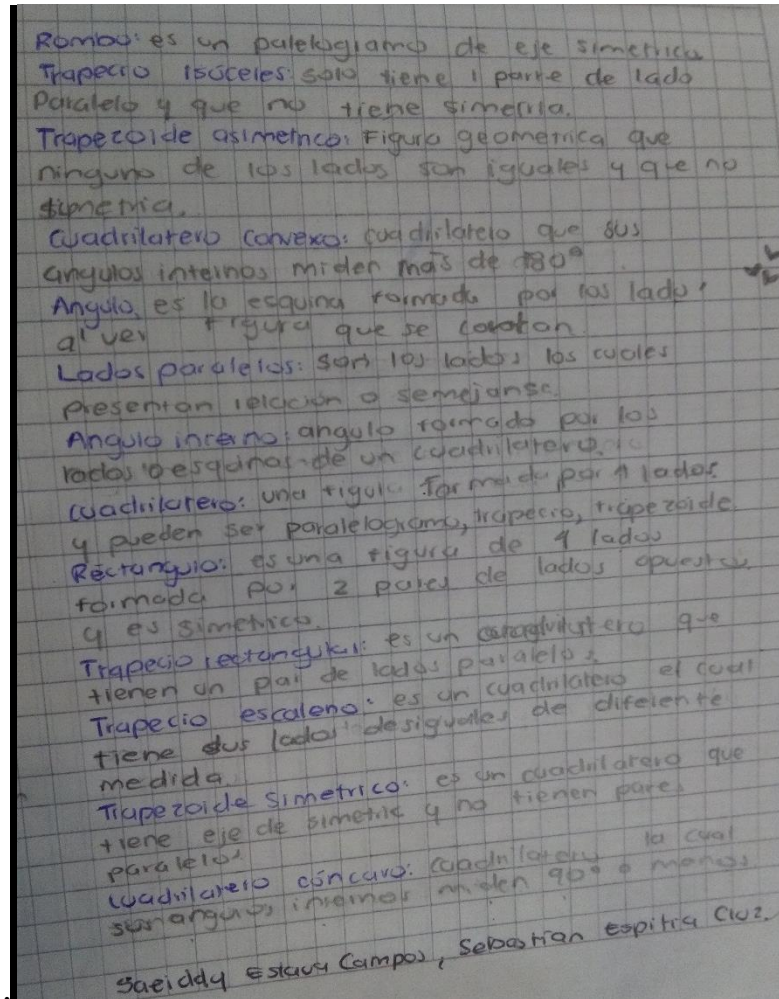 Rombo: es un palelogramo de eje simetrica
Trapecio isóceles: solo tiene 1 parte de lado
Paralelo y que no tiene simetria.
Trapezoide asimetrico: Figura geometrica que
ninguno de los lados son iguales y que no
simetria.
Cuadrilatero convexo: cuadrilatero que sus
angulos internos miden mas de 180°
Angulo: es la esquina formada por los lados
al ver figura que se
Lados paralelos: son los lados los cuales
presentan relacion o semejansa
Angulo interno: angulo formado por los
lados o esquinas de un cuadrilatero.
cuadrilatero: una figura formada por 4 lados
y pueden ser paralelogramo, trapecio, trapezoide.
Réctangulo: es una figura de 4 lados
formada por 2 pares de lados opuestos
y es simetrico.
Trapecio rectangular: es un que
tienen un par de lados paralelos
Trapecio escaleno: es un cuadrilatero el cual
tiene sus lados desiguales de diferente
medida.
Trapezoide simetrico: es un cuadrilatero que
tiene eje de simetria y no tienen pares
paralelos
cuadrilatero cóncavo: cuadrilatero la cual
sus angulos internos miden 90° o menos
Saeiddy Eslava Campos, Sebastian espitia Cruz.